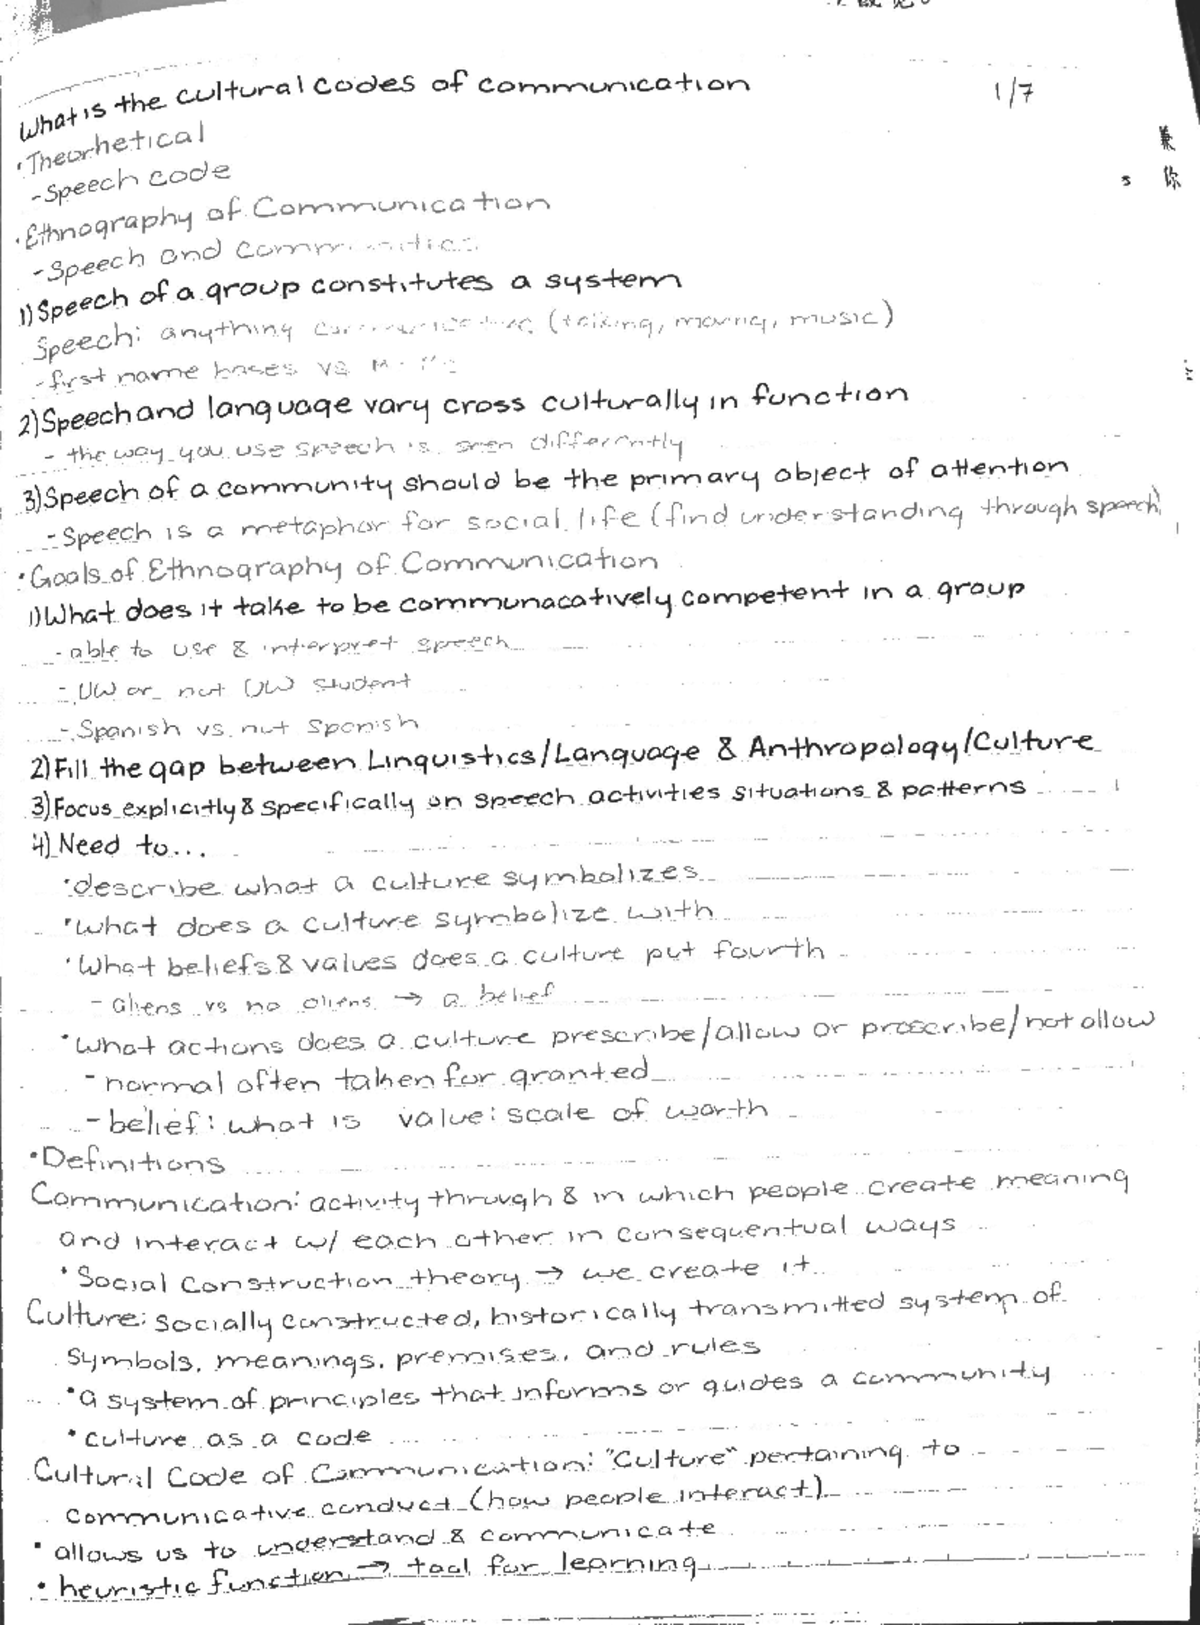 What is the cultural codes of communication
1/7
•Theorhetical
-Speech code
•Ethnography of Communication
-Speech and
1) Speech of a group constitutes a system
Speech: anything (talking, moving, music)
-first name bases vs
2) Speech and language vary cross culturally in function
- the way you use speech is seen differently
3) Speech of a community should be the primary object of attention
- Speech is a metaphor for social life (find understanding through speech)
•Goals of Ethnography of Communication
1) What does it take to be communacatively competent in a group
- able to use & interpret speech
- UW or not UW student
- Spanish vs. not Spanish
2) Fill the gap between Linguistics/Language & Anthropology/Culture
3) Focus explicitly & specifically on speech activities situations & patterns
4) Need to...
•describe what a culture symbolizes
•what does a culture symbolize with
•What beliefs & values does a culture put fourth
- aliens vs no aliens → a belief
•what actions does a culture prescribe/allow or proscribe/not allow
- normal often taken for granted
- belief: what is value: scale of worth
•Definitions
Communication: activity through & in which people create meaning
and interact w/ each other in consequentual ways
•Social Construction theory → we create it
Culture: socially constructed, historically transmitted system of
symbols, meanings, premises, and rules
•a system of principles that informs or guides a community
•culture as a code
Cultural Code of Communication: "Culture" pertaining to
communicative conduct (how people interact)
• allows us to understand & communicate
• heuristic function → tool for learning
你